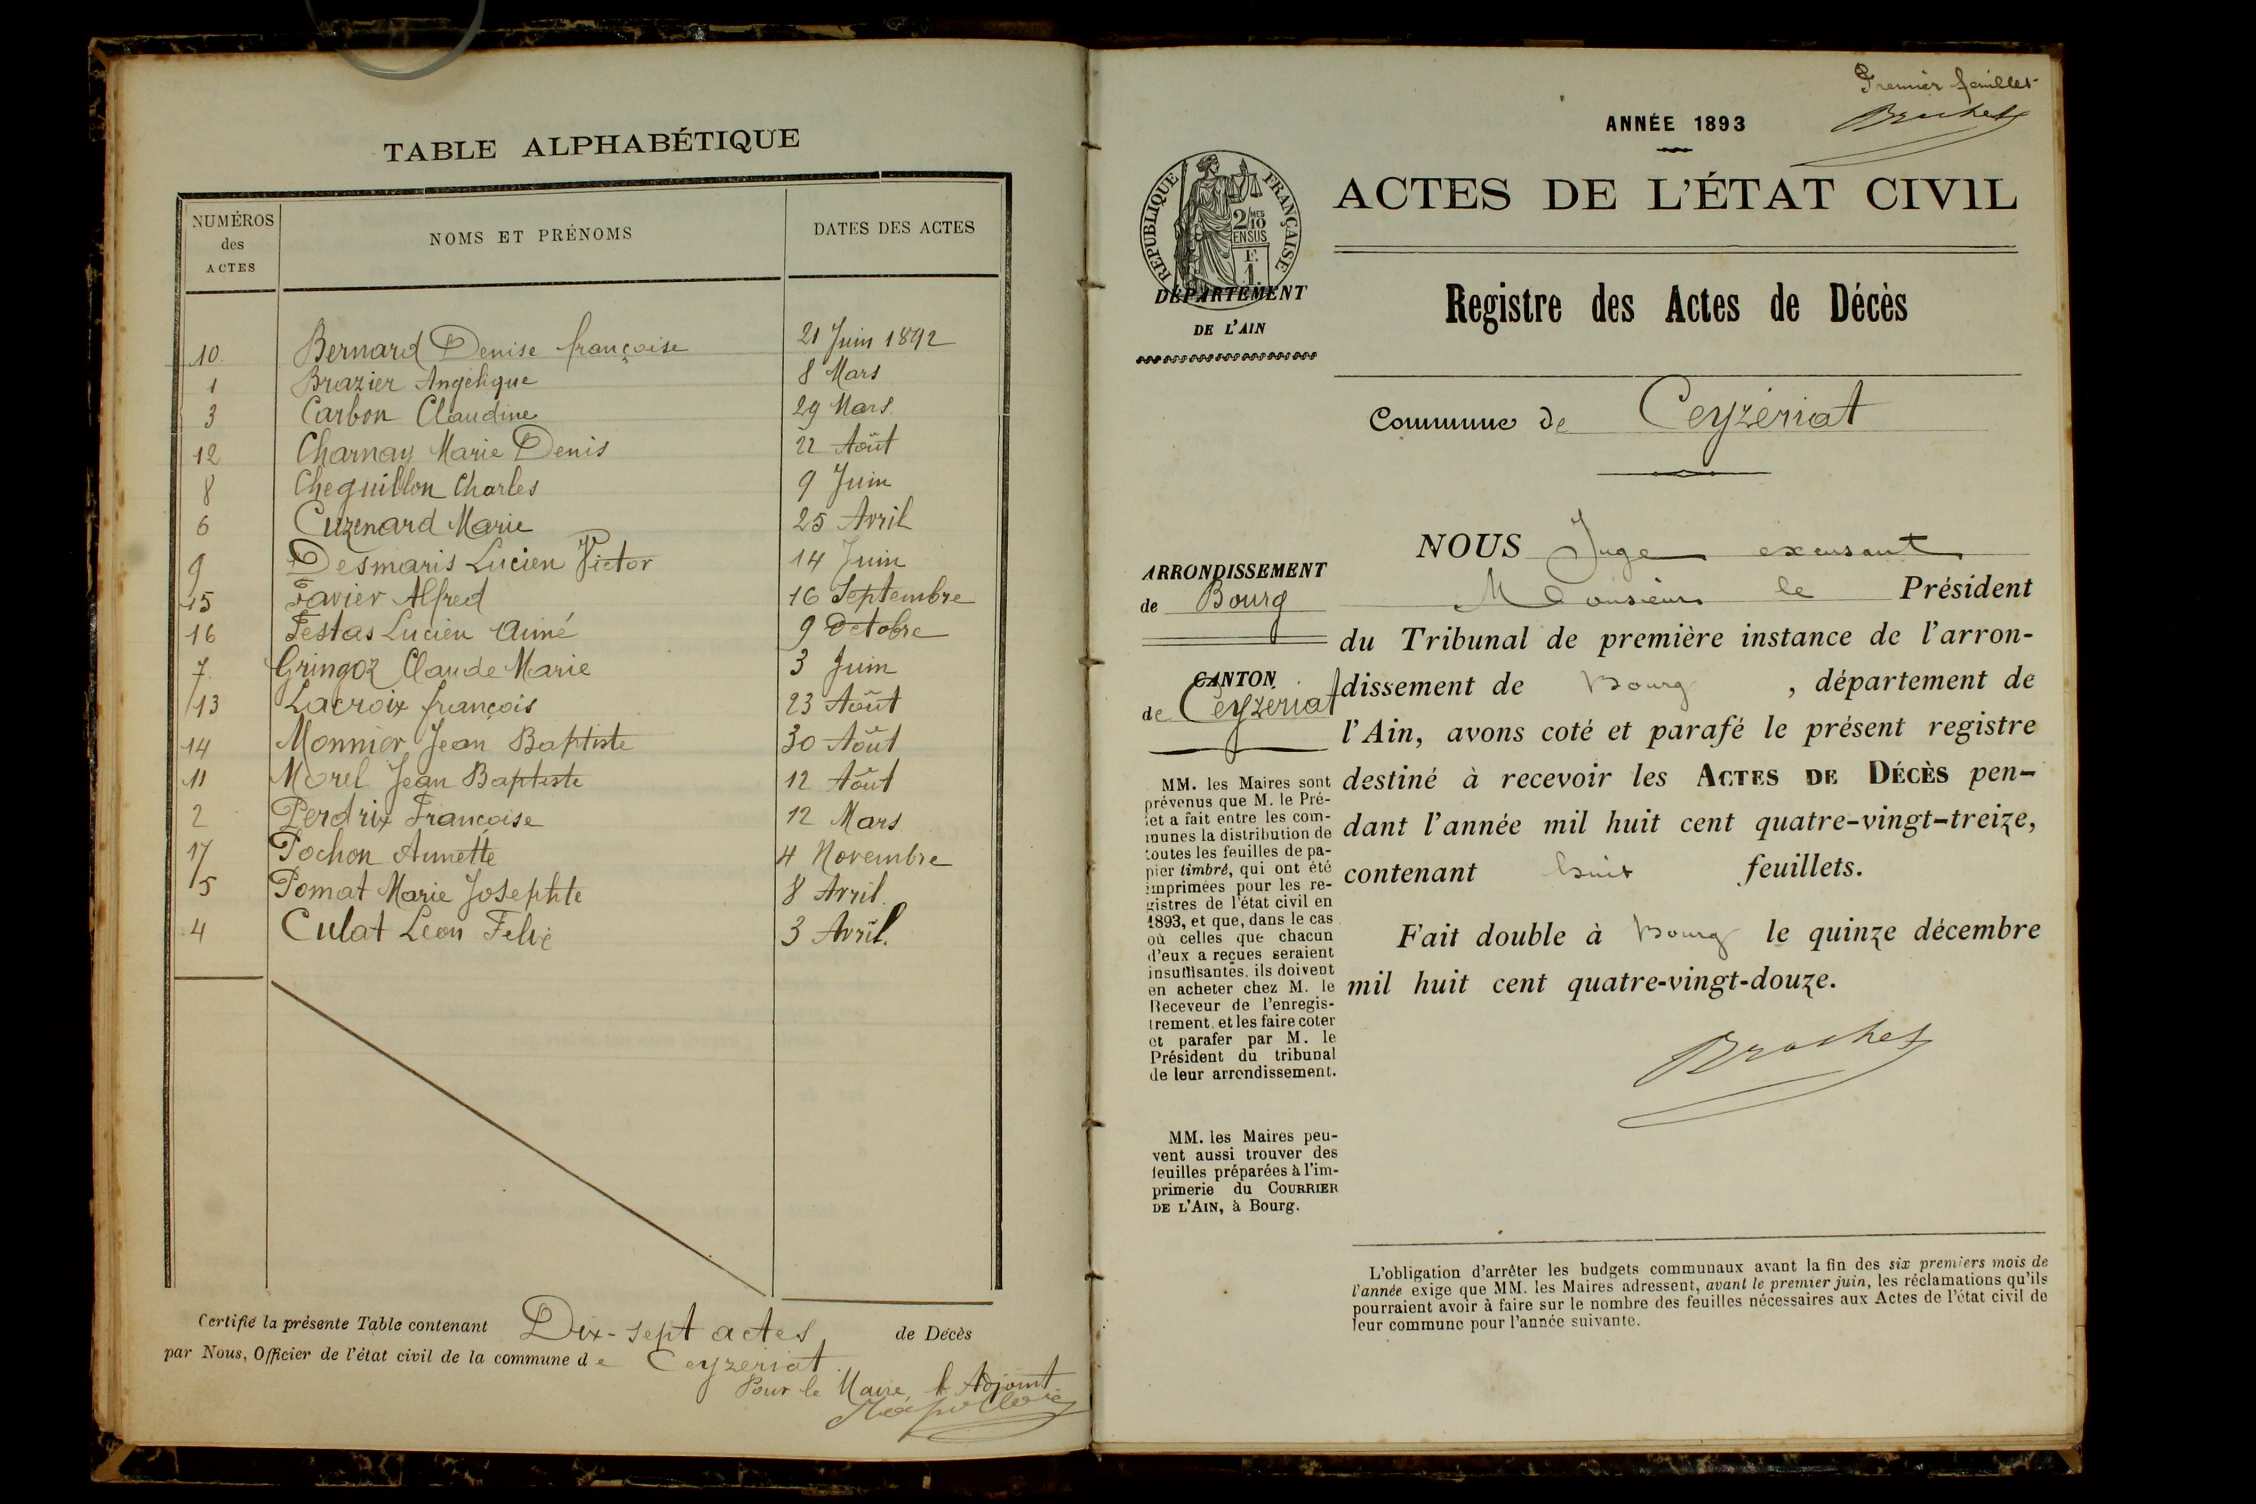 TABLE ALPHABÉTIQUE
NUMÉROS des ACTES
NOMS ET PRÉNOMS
DATES DES ACTES
10 Bernard Denise françoise 21 Juin 1892
1 Brazier Angélique 8 Mars
3 Carbon Claudine 29 Mars
12 Charnay Marie Denis 22 Août
8 Cheguillon Charles 9 Juin
6 Cuzenard Marie 25 Avril
9 Desmaris Lucien Victor 14 Juin
15 Favier Alfred 16 Septembre
16 Festas Lucien Aimé 9 Octobre
7 Gringoz Claude Marie 3 Juin
13 Lacroix françois 23 Août
14 Monnier Jean Baptiste 30 Août
11 Morel Jean Baptiste 12 Août
2 Perdrix Françoise 12 Mars
17 Pochon Annette 4 Novembre
5 Pomat Marie Josephte 8 Avril.
4 Culat Léon Felix 3 Avril.
Certifié la présente Table contenant Dix-sept actes de Décès
par Nous, Officier de l'état civil de la commune de Ceyzeriat.
Pour le Maire, l'Adjoint
Premier feuillet
Brochet
ANNÉE 1893
RÉPUBLIQUE FRANÇAISE
2/10 MES
EN SUS
F. 1
ACTES DE L'ÉTAT CIVIL
DÉPARTEMENT
DE L'AIN
Registre des Actes de Décès
Commune de Ceyzériat
ARRONDISSEMENT
de Bourg
CANTON
de Ceyzériat
MM. les Maires sont
prévenus que M. le Pré-
fet a fait entre les com-
munes la distribution de
toutes les feuilles de pa-
pier timbré, qui ont été
imprimées pour les re-
gistres de l'état civil en
1893, et que, dans le cas
où celles que chacun
d'eux a reçues seraient
insuffisantes, ils doivent
en acheter chez M. le
Receveur de l'enregis-
trement, et les faire coter
et parafer par M. le
Président du tribunal
de leur arrondissement.
MM. les Maires peu-
vent aussi trouver des
feuilles préparées à l'im-
primerie du COURRIER
DE L'AIN, à Bourg.
NOUS Juge excusant
Monsieur le Président
du Tribunal de première instance de l'arron-
dissement de Bourg, département de
l'Ain, avons coté et parafé le présent registre
destiné à recevoir les ACTES DE DÉCÈS pen-
dant l'année mil huit cent quatre-vingt-treize,
contenant huit feuillets.
Fait double à Bourg le quinze décembre
mil huit cent quatre-vingt-douze.
Brochet
L'obligation d'arrêter les budgets communaux avant la fin des six premiers mois de
l'année exige que MM. les Maires adressent, avant le premier juin, les réclamations qu'ils
pourraient avoir à faire sur le nombre des feuilles nécessaires aux Actes de l'état civil de
leur commune pour l'année suivante.